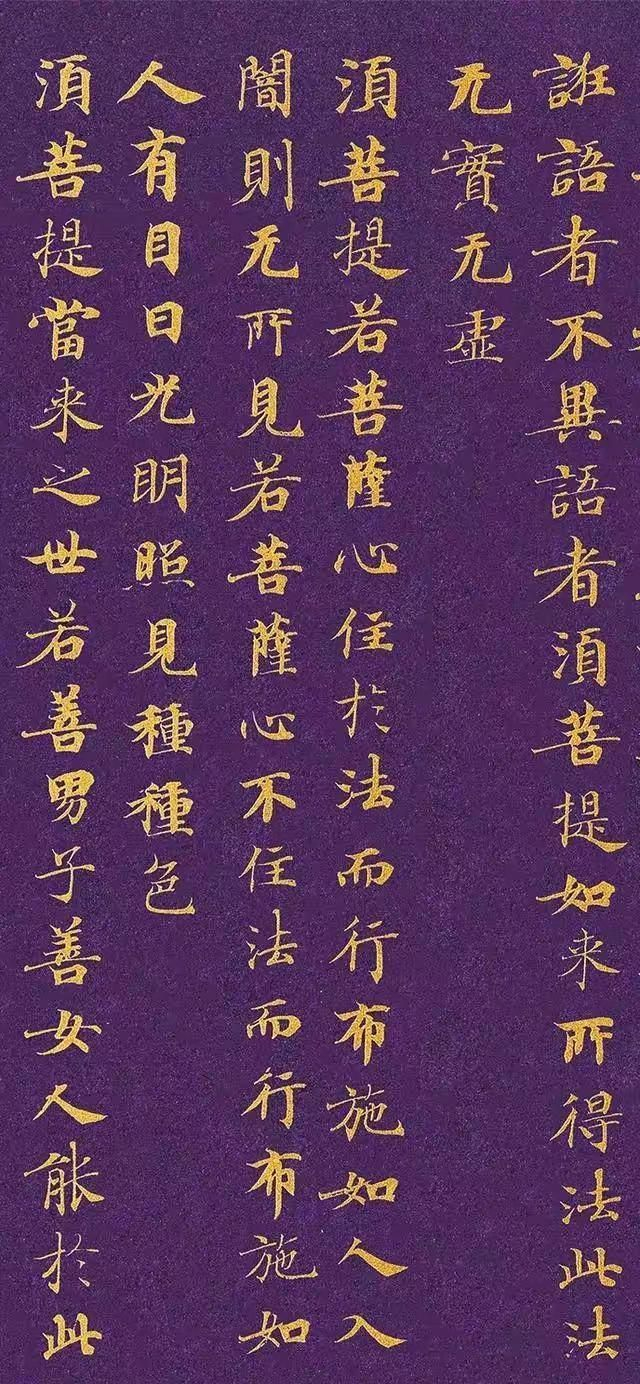 誑語者不異語者須菩提如来所得法此法
无實无虛
須菩提若菩薩心住於法而行布施如人入
闇則无所見若菩薩心不住法而行布施如
人有目日光明照見種種色
須菩提當来之世若善男子善女人能於此